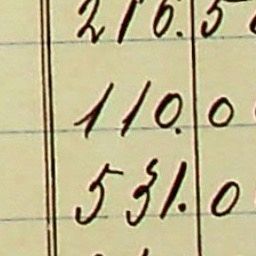 216.5
110.0
531.0